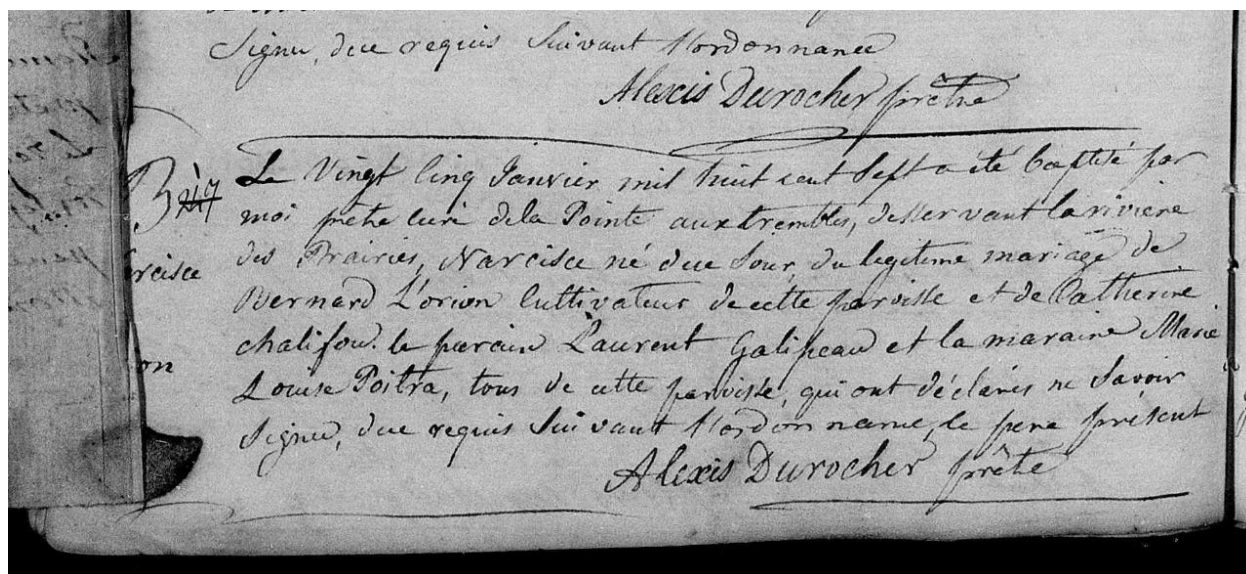 Signer, due requis Suivant l'ordonnance
Alexis Durocher prêtre
B
Le Vingt Cinq Janvier mil huit cent Sept a été baptisé par
moi prêtre curé de la Pointe aux trembles, desservant la riviere
des Prairies, Narcisce né due Jour, du legitime mariage de
rcisce
Bernard L'orion Cultivateur de cette paroisse et de Catherine
chalifou. le parain Laurent Galipeau et la maraine Marie
on
Louise Poitra, tous de cette paroisse, qui ont déclarés ne Savoir
Signer, due requis Suivant l'ordonnance, le pere présent
Alexis Durocher prête